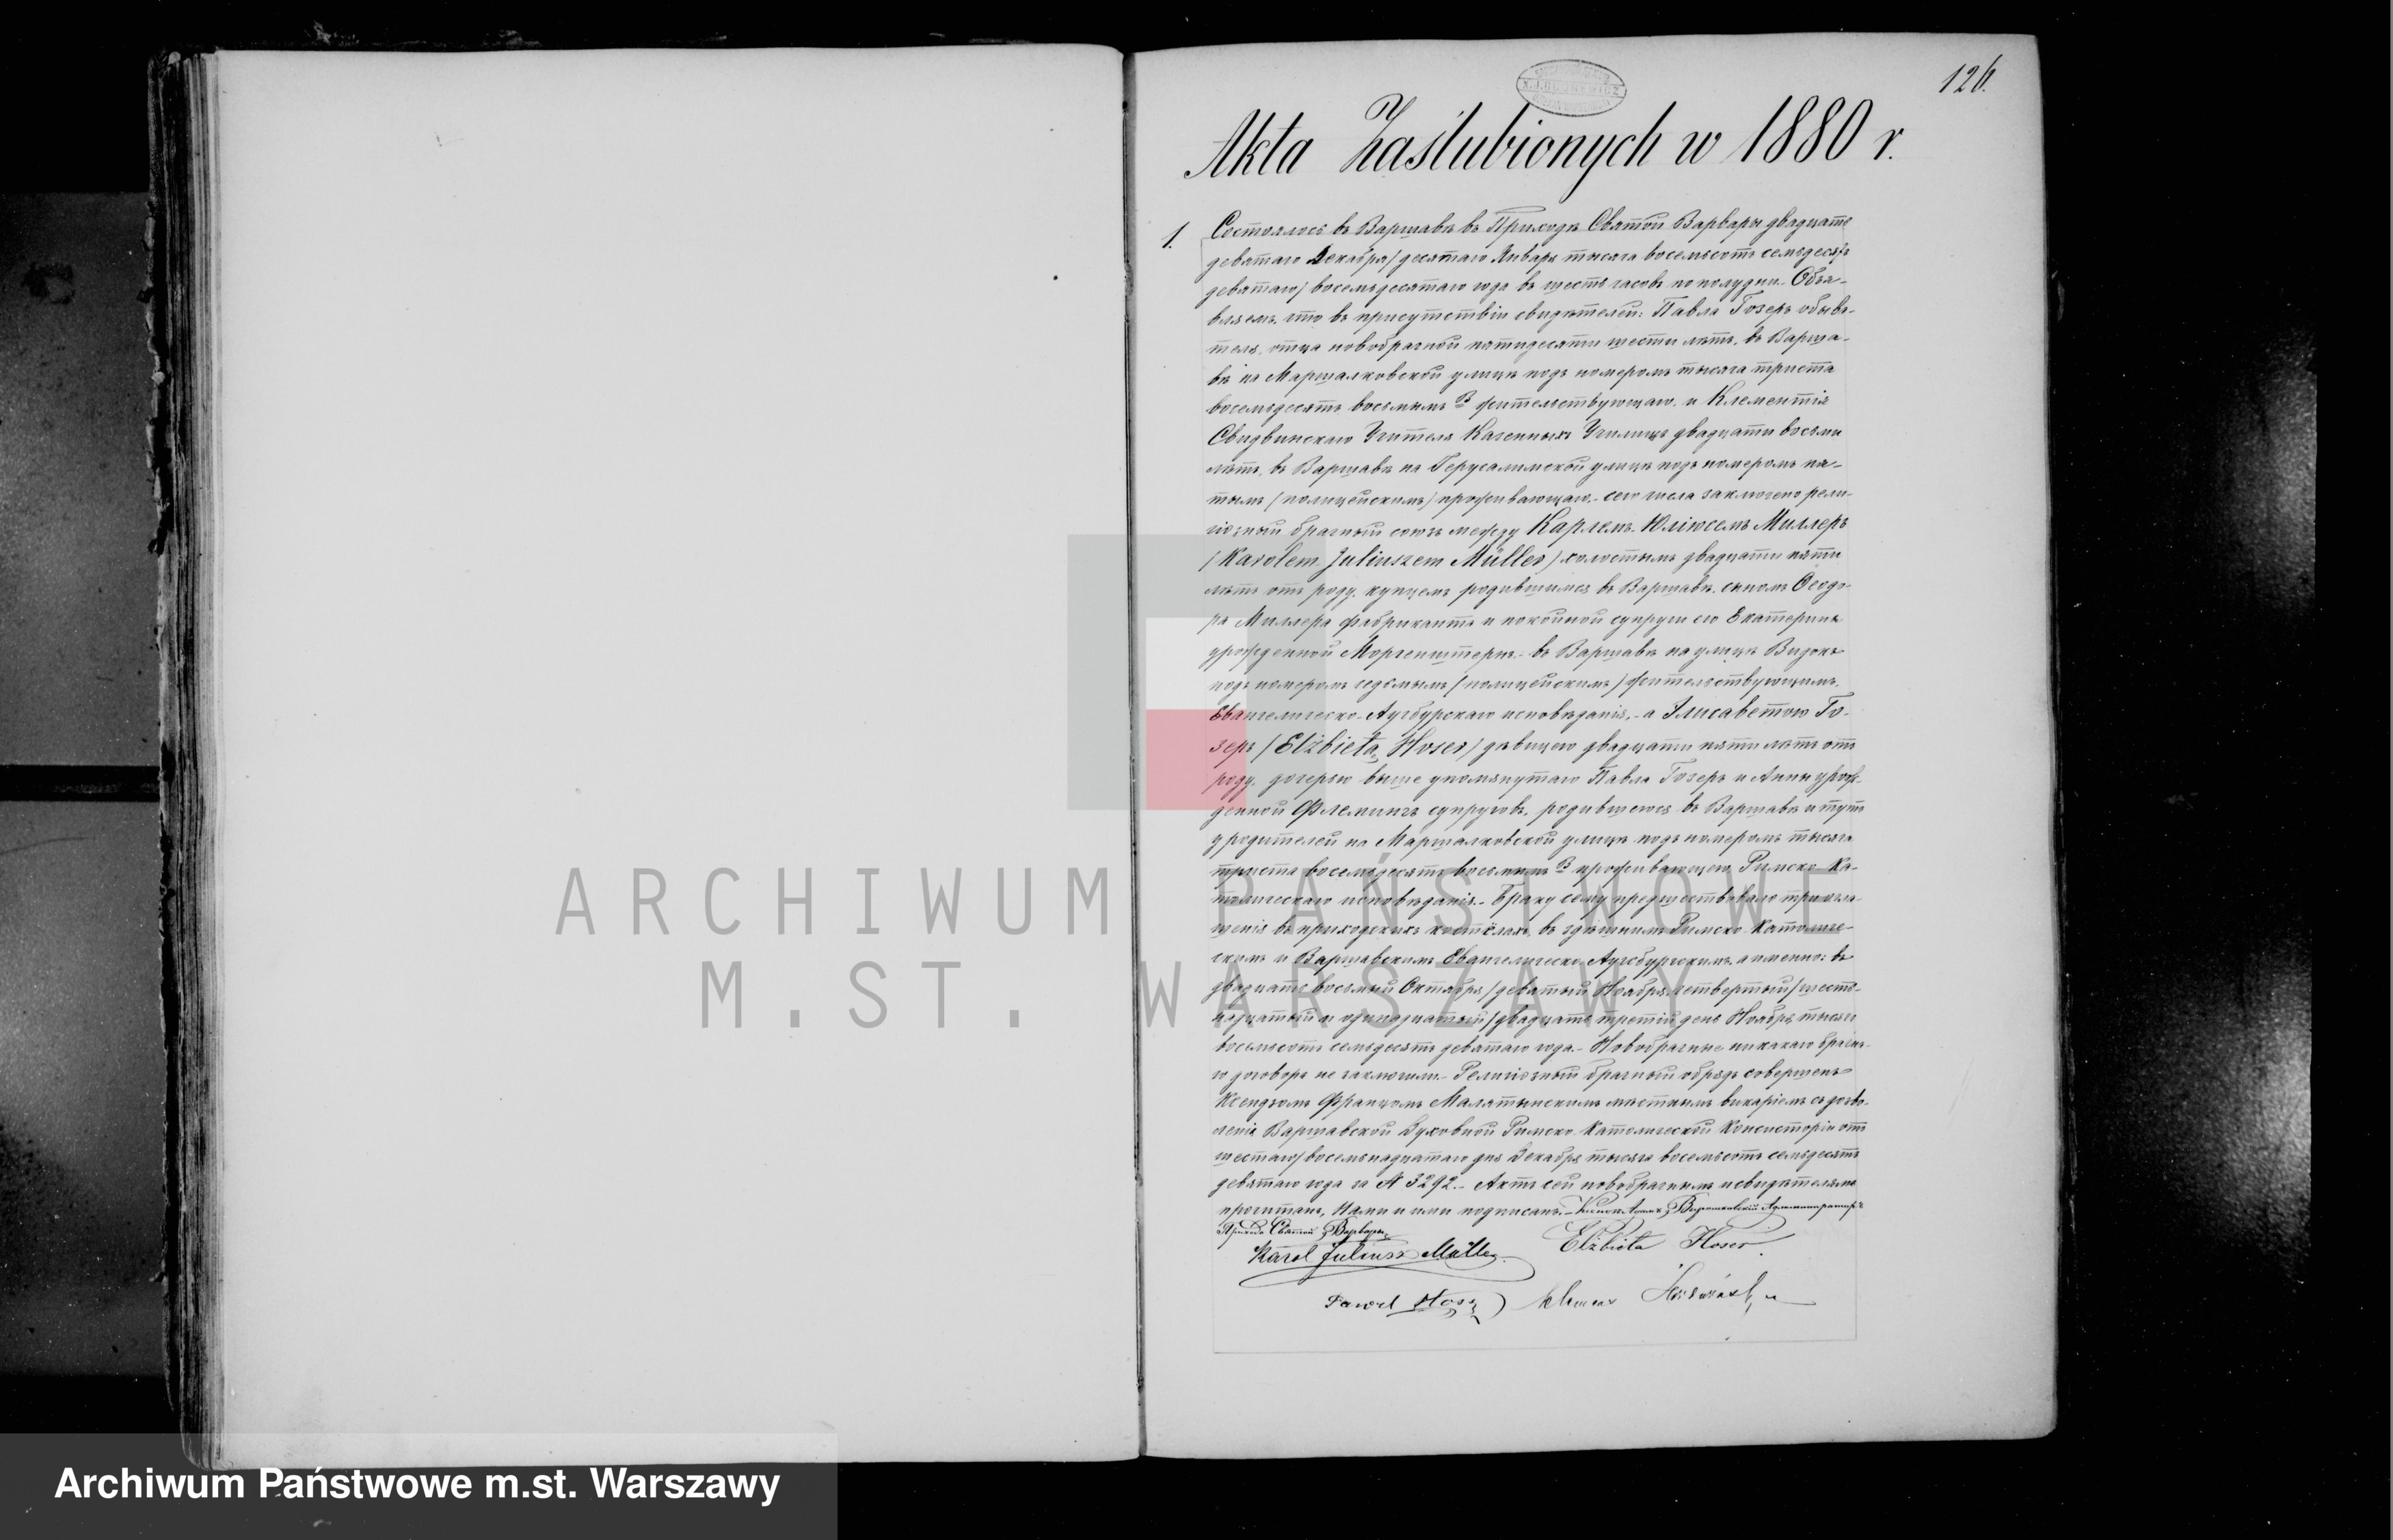 126.
Akta Zaślubionych w 1880 r.
1. Состоялось въ Варшавѣ въ Приходѣ Святой Варвары двадцать
девятаго Декабря/десятаго Января тысяча восемьсотъ семьдесятъ
девятаго/восемьдесятаго года въ шесть часовъ по полудни. Объя-
вляемъ, что въ присутствіи свидѣтелей: Павла Гозеръ обыва-
теля, отца новобрачной пятидесяти шести лѣтъ, въ Варша-
вѣ на Маршалковской улицѣ подъ номеромъ тысяча триста
восемьдесятъ восьмымъ В жительствующаго, и Клементія
Свидвинскаго Учителя Казенныхъ Училищъ двадцати восьми
лѣтъ, въ Варшавѣ на Іерусалимской улицѣ подъ номеромъ пя-
тымъ (полицейскимъ) проживающаго, сего числа заключено рели-
гіозный брачный союзъ между Карлемъ-Юліюсемъ Миллеръ
/Karolem Juliuszem Müller/ холостымъ двадцати пяти
лѣтъ отъ роду, купцемъ родившимся въ Варшавѣ, сыномъ Ѳеодо-
ра Миллера фабриканта и покойной супруги его Екатерины
урожденной Моргенштернъ, въ Варшавѣ на улицѣ Видокъ
подъ номеромъ седьмымъ (полицейскимъ) жительствующимъ,
Евангелическо-Аугбурскаго исповѣданія, а Элисаветою Го-
зеръ /Elżbieta Hoser/ дѣвицею двадцати пяти лѣтъ отъ
роду, дочерью выше упомянутаго Павла Гозеръ и Анны урож-
денной Флемингъ супруговъ, родившеюся въ Варшавѣ и тутъ
у родителей на Маршалковской улицѣ подъ номеромъ тысяча
триста восемьдесятъ восьмымъ В проживающею, Римско-Ка-
толическаго исповѣданія. Браку сему предшествовало три огла-
шенія въ приходскихъ костёлахъ, въ здѣшнимъ Римско-Католиче-
скимъ и Варшавскимъ Евангелическо-Аугсбургскимъ, а именно: въ
двадцать восьмый Октября/девятый Ноября, четвертый/шест-
надцатый и одинадцатый/двадцать третій день Ноября тысяча
восемьсотъ семьдесятъ девятаго года. Новобрачные никакаго брачна-
го договора не заключили. Религіозный брачный обрядъ совершенъ
Ксендзомъ Францомъ Малятынскимъ мѣстнымъ викаріемъ съ дозво-
ленія Варшавской Духовной Римско-Католической Консисторіи отъ
шестаго/восемьнадцатаго дня Декабря тысяча восемьсотъ семьдесятъ
девятаго года за № 3292. Актъ сей новобрачнымъ и свидѣтелямъ
прочитанъ, Нами и ими подписанъ. Администраторъ
Прихода Святой Варвары
Karol Juliusz Müller Elżbieta Hoser
Paweł Hoser Klemens
ARCHIWUM PAŃSTWOWE
M.ST. WARSZAWY
Archiwum Państwowe m.st. Warszawy